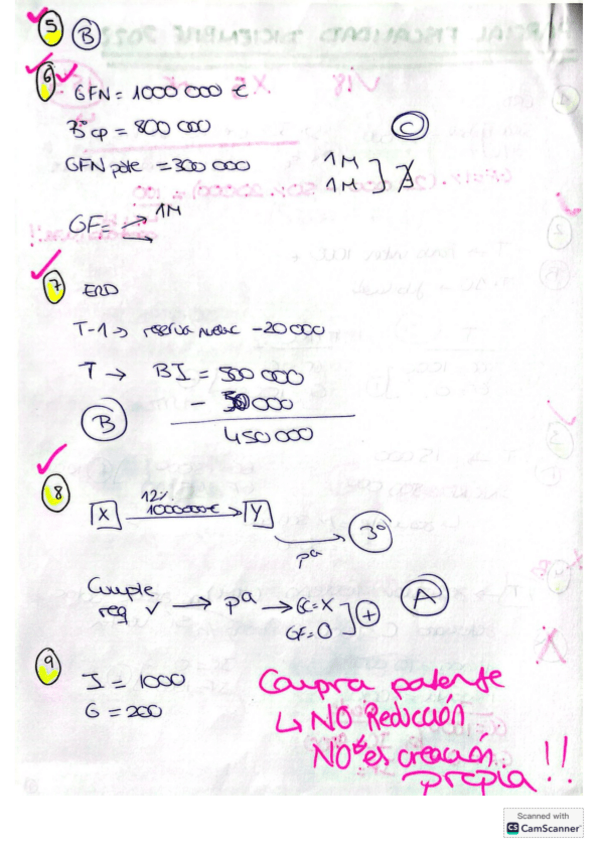 5 B
6 GFN = 1000 000 €
Bº cp = 800 000
C
GFN pdte = 300 000
1M
1M
GF = → 1M
7 ERD
T-1 → reserva nivelac -20000
T → BI = 500 000
- 50 000
B
450 000
8
X 12% 1000000€ Y
pª
3º
Cumple
req ✓ → pª → GC = X
GF = 0
+
A
9
I = 1000
G = 200
Compra patente
↳ NO Reducción
NO es creación
propia !!
Scanned with
CS CamScanner